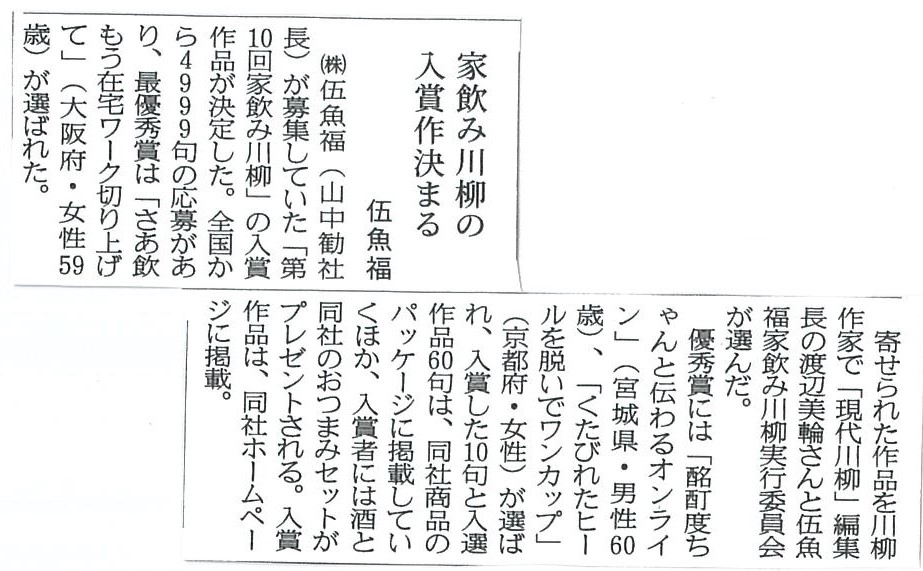 家飲み川柳の
入賞作決まる
伍魚福
㈱伍魚福(山中勧社
長)が募集していた「第
10回家飲み川柳」の入賞
作品が決定した。全国か
ら4999句の応募があ
り、最優秀賞は「さあ飲
もう在宅ワーク切り上げ
て」(大阪府・女性59
歳)が選ばれた。
寄せられた作品を川柳
作家で「現代川柳」編集
長の渡辺美輪さんと伍魚
福家飲み川柳実行委員会
が選んだ。
優秀賞には「酩酊度ち
ゃんと伝わるオンライ
ン」(宮城県・男性60
歳)、「くたびれたヒー
ルを脱いでワンカップ」
(京都府・女性)が選ば
れ、入賞した10句と入選
作品60句は、同社商品の
パッケージに掲載してい
くほか、入賞者には酒と
同社のおつまみセットが
プレゼントされる。入賞
作品は、同社ホームペー
ジに掲載。